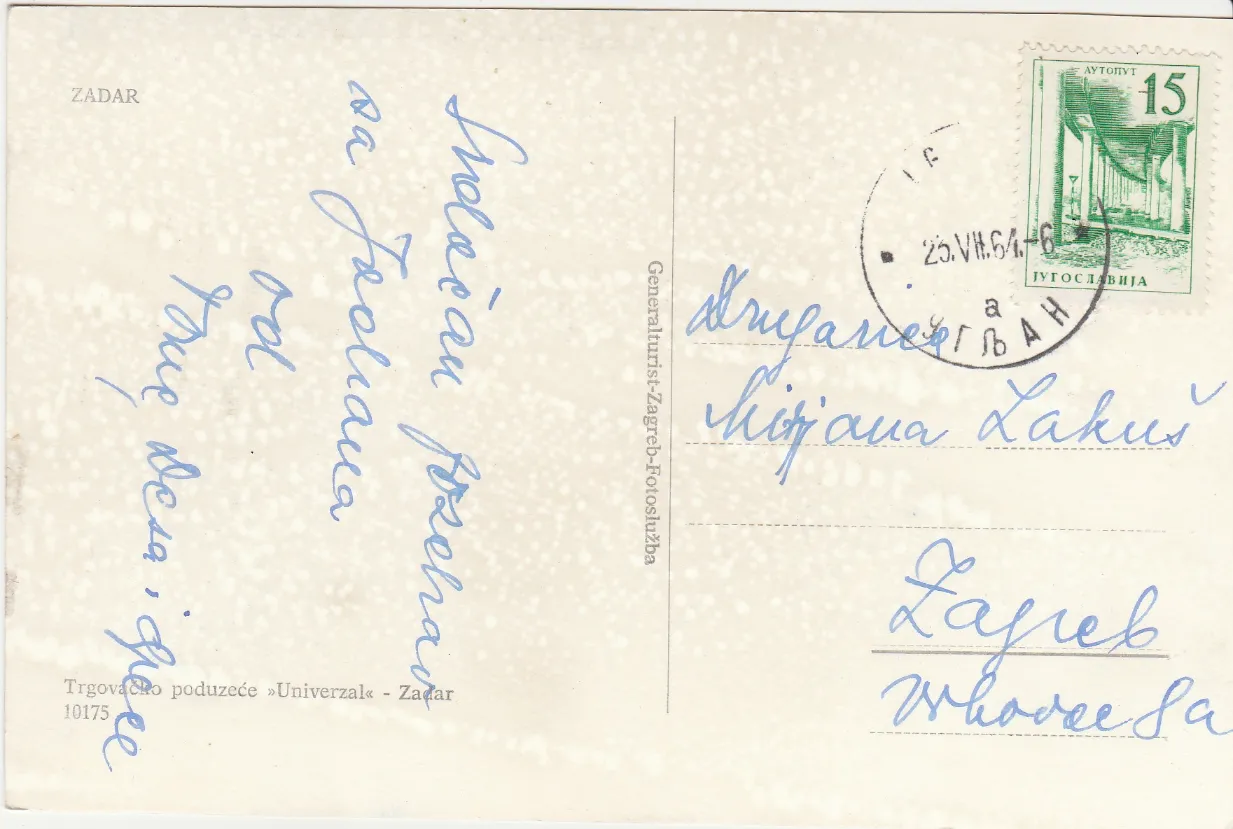 ZADAR
Srdačan pozdrav
sa Jadrana
od
Desa, i
Trgovačko poduzeće »Univerzal« - Zadar
10175
Generalturist-Zagreb-Fotoslužba
АУТОПУТ
15
ЈУГОСЛАВИЈА
25.VII.64.-6
а
УГЉАН
Drugarica
Mirjana Lakuš
Zagreb
Vrhovac 8a